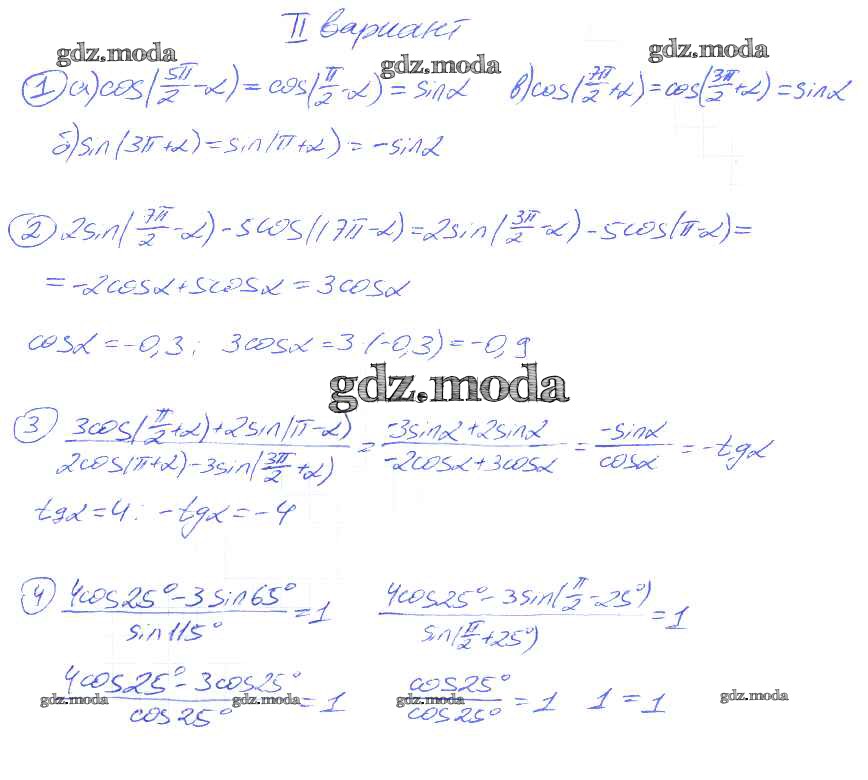 II вариант
gdz.moda gdz.moda gdz.moda
1 а) cos(5π/2 - α) = cos(π/2 - α) = sinα в) cos(7π/2 + α) = cos(3π/2 + α) = sinα
б) sin(3π + α) = sin(π + α) = -sinα
2 2sin(7π/2 - α) - 5cos(17π - α) = 2sin(3π/2 - α) - 5cos(π - α) =
= -2cosα + 5cosα = 3cosα
cosα = -0,3; 3cosα = 3·(-0,3) = -0,9
gdz.moda
3 (3cos(π/2 + α) + 2sin(π - α))/(2cos(π + α) - 3sin(3π/2 + α)) = (-3sinα + 2sinα)/(-2cosα + 3cosα) = -sinα/cosα = -tgα
tgα = 4; -tgα = -4
4 (4cos25° - 3sin65°)/sin115° = 1 (4cos25° - 3sin(π/2 - 25°))/sin(π/2 + 25°) = 1
(4cos25° - 3cos25°)/cos25° = 1 cos25°/cos25° = 1 1 = 1
gdz.moda gdz.moda gdz.moda gdz.moda